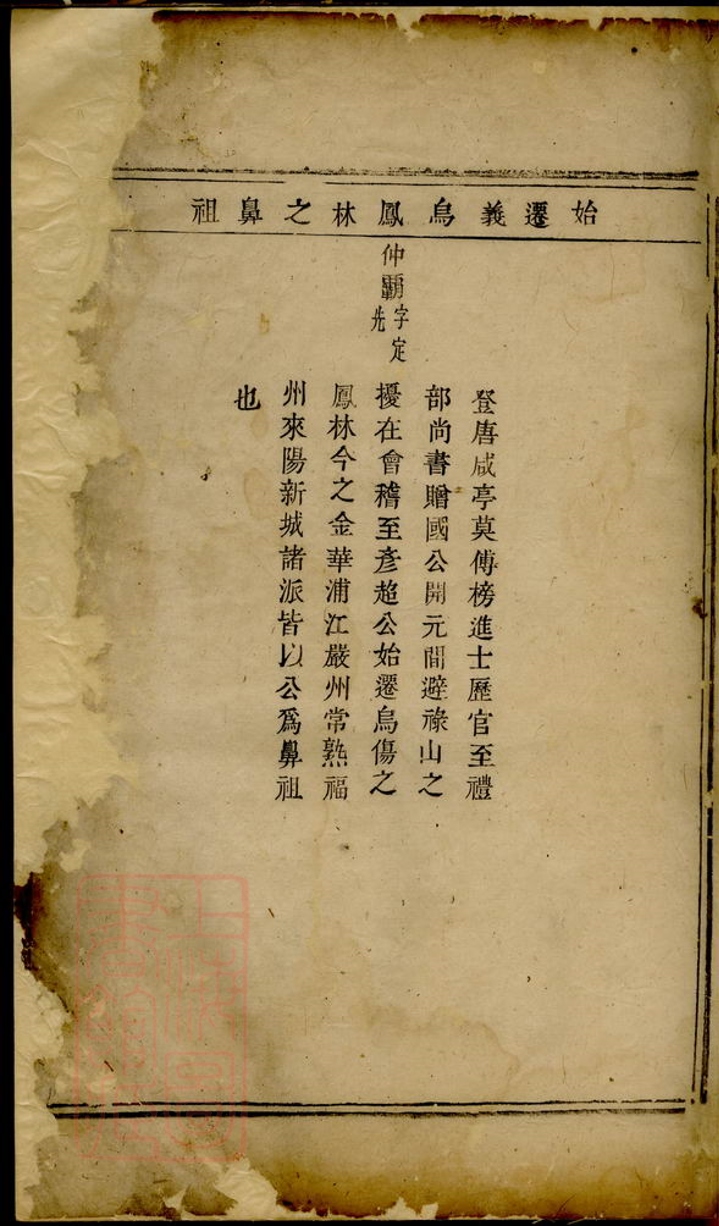 始遷義烏鳳林之鼻祖
仲霸字定先
登唐咸亭莫傅榜進士歷官至禮
部尚書贈國公開元間避祿山之
擾在會稽至彥超公始遷烏傷之
鳳林今之金華浦江嚴州常熟福
州來陽新城諸派皆以公爲鼻祖
也